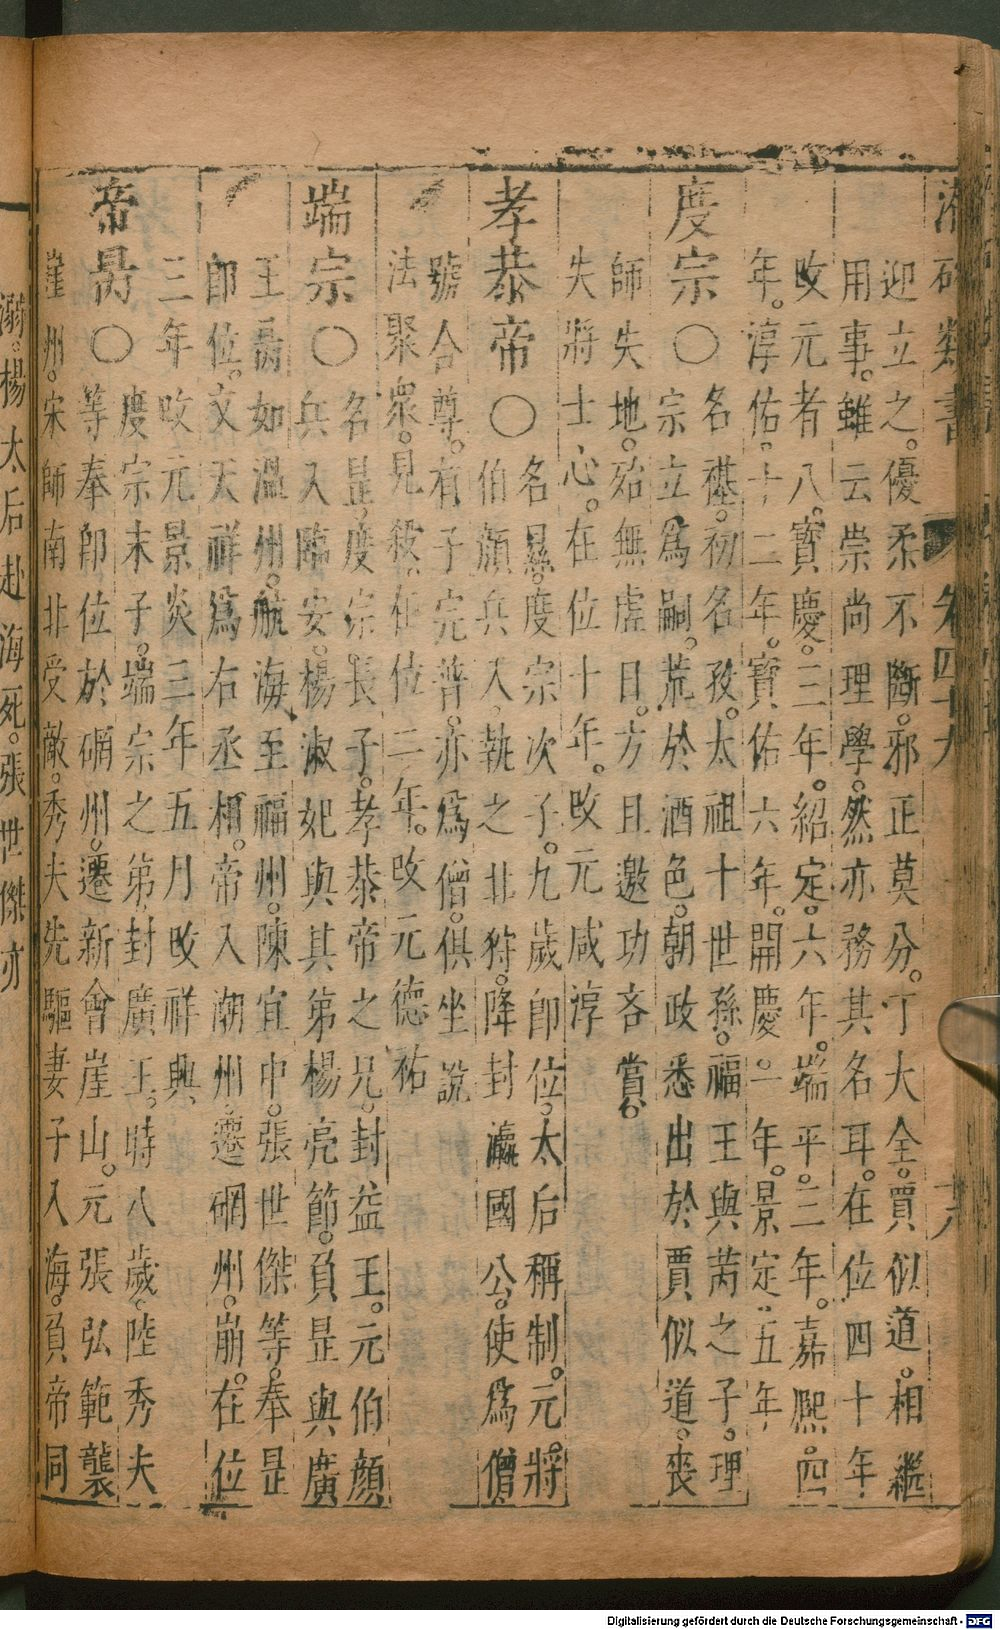 類書 卷四十九
迎立之。優柔不斷。邪正莫分。丁大全。賈似道。相繼
用事。雖云崇尚理學。然亦務其名耳。在位四十年
改元者八。寶慶。三年。紹定。六年。端平。三年。嘉熙。四
年。淳佑。十二年。寶佑六年。開慶。一年。景定。五年
度宗○名禥。初名孜。太祖十世孫。福王與芮之子。理
宗立爲嗣。荒於酒色。朝政悉出於賈似道。喪
師失地。殆無虛日。方且邀功吝賞。
失將士心。在位十年。改元咸淳
孝恭帝○名㬎。度宗次子。九歲卽位。太后稱制。元將
伯顏兵入。執之北狩。降封瀛國公。使爲僧
號合尊。有子完普。亦爲僧。俱坐說
法聚衆。見殺。在位二年。改元德祐
端宗○名昰。度宗長子。孝恭帝之兄。封益王。元伯顏
兵入臨安。楊淑妃與其弟楊亮節。負昰與廣
王昺如溫州。航海至福州。陳宜中。張世傑等。奉昰
卽位。文天祥爲右丞相。帝入潮州。遷碙州。崩。在位
三年改元景炎三年五月改祥興
帝昺○度宗末子。端宗之弟。封廣王。時八歲。陸秀夫
等奉卽位於碙州。遷新會崖山。元張弘範襲
崖州。宋師南北受敵。秀夫先驅妻子入海。負帝同
溺。楊太后赴海死。張世傑亦
Digitalisierung gefördert durch die Deutsche Forschungsgemeinschaft - DFG